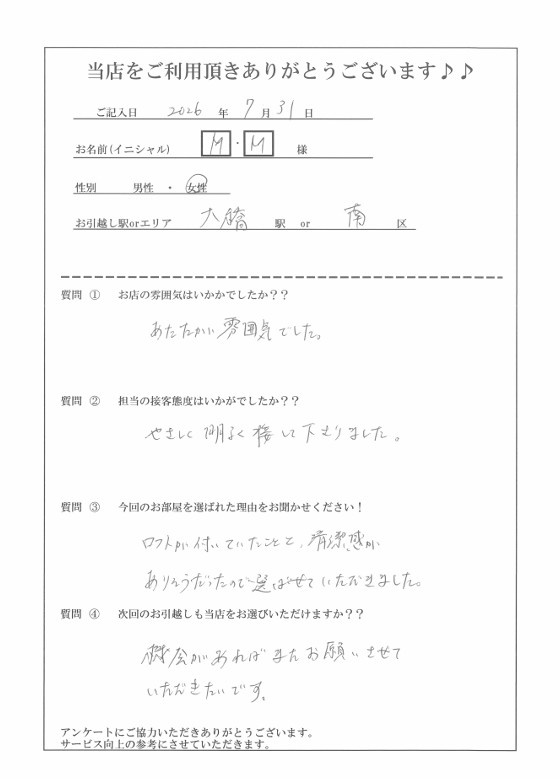 当店をご利用頂きありがとうございます♪♪
ご記入日 2026 年 7 月 31 日
お名前(イニシャル) M・M 様
性別 男性 ・ 女性
お引越し駅orエリア 大橋 駅 or 南 区
質問 ① お店の雰囲気はいかかでしたか??
あたたかい雰囲気でした。
質問 ② 担当の接客態度はいかがでしたか??
やさしく明るく接して下さりました。
質問 ③ 今回のお部屋を選ばれた理由をお聞かせください!
ロフトが付いていたことと、清潔感が
ありそうだったので選ばせていただきました。
質問 ④ 次回のお引越しも当店をお選びいただけますか??
機会があればまたお願いさせて
いただきたいです。
アンケートにご協力いただきありがとうございます。
サービス向上の参考にさせていただきます。